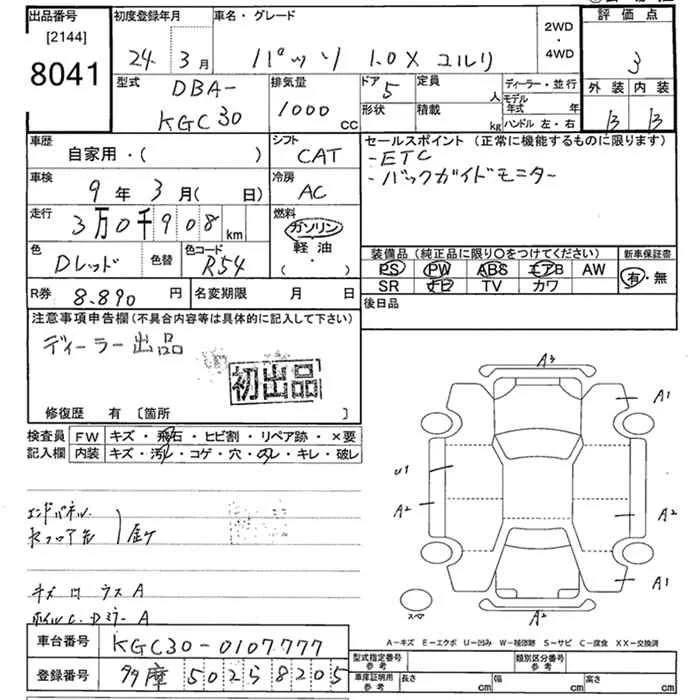 出品番号
[2144]
8041
初度登録年月
24年 3月
車名・グレード
パッソ 1.0X ユルリ
2WD
4WD
評価点
3
外装 内装
B B
型式
DBA-
KGC30
排気量
1000
CC
ドア
5
定員
人
形状
積載
kg
ディーラー・並行
モデル年式 年
ハンドル 左・右
車歴
自家用・( )
シフト
CAT
セールスポイント (正常に機能するものに限ります)
-ETC
-バックガイドモニター
車検
9年 3月( 日)
冷房
AC
走行
3万0千908km
燃料
ガソリン
軽油
( ・ )
色
Dレッド
色替
色コード
R54
装備品 (純正品に限り○をつけてください)
新車保証書
PS PW ABS エアB AW
SR ナビ TV カワ
有・無
R券
8.890円
名変期限 月 日
後日品
注意事項申告欄(不具合内容等は具体的に記入して下さい)
ディーラー出品
初出品
修復歴 有 [箇所 ]
検査員
記入欄
FW キズ・飛石・ヒビ割・リペア跡・×要
内装 キズ・汚レ・コゲ・穴・凹レ・キレ・破レ
エンドパネル
A3
A1
U1
A2
A2
A1
A2
スペア
キズ 凹 ウス A
ホイルC. Dミラー A
A-キズ E-エクボ U-凹み W-補修跡 S-サビ C-腐食 XX-交換済
車台番号
KGC30-0107777
登録番号
多摩 502 5 8205
型式指定番号
参考
類別区分番号
参考
車庫証明用
参考
長さ cm
幅 cm
高さ cm